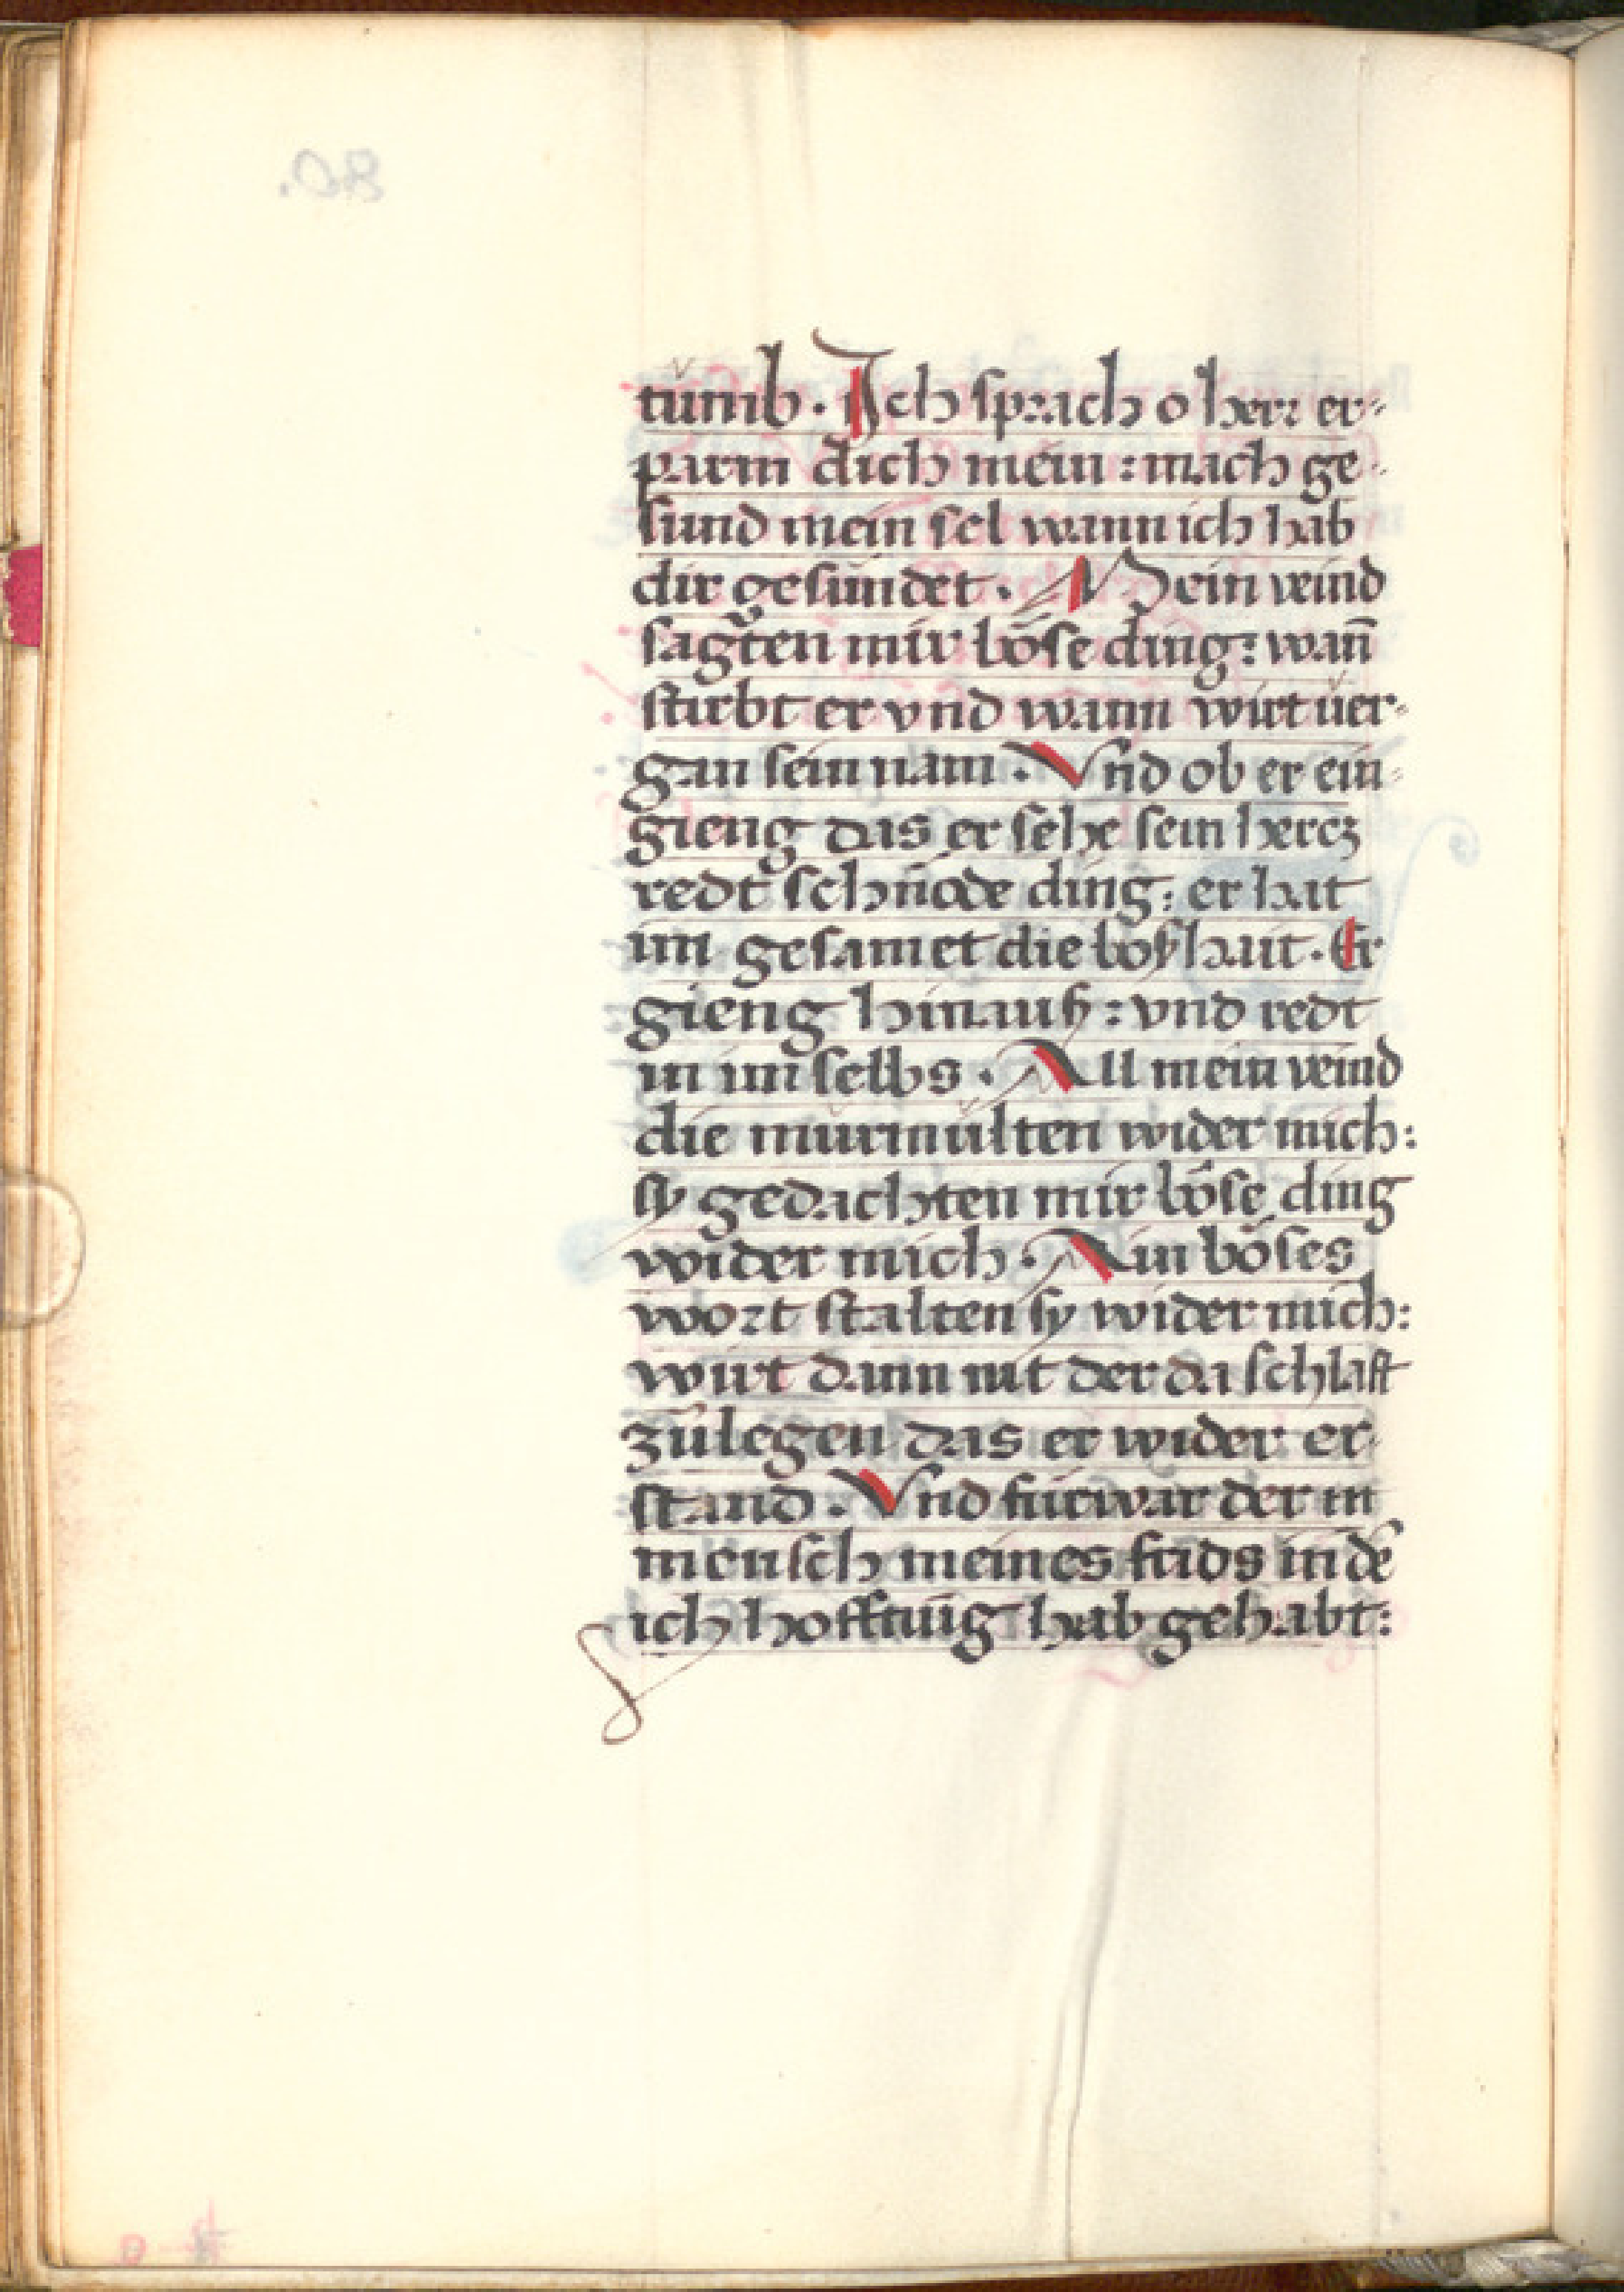 tůmb. Ich sprach o herr er⸗
parm dich mein: mach ge⸗
sund mein sel wann ich hab
dir gesündet. Mein veind
sagten mir böse ding: wañ
stirbt er vnd wann wirt ůer⸗
gan sein nam. Vnd ob er ein⸗
gieng das er sehe sein hercz
redt schnöde ding: er hat
im gesamet die boßhait. Er
gieng hinauß: vnd redt
in im selbs. All mein veind
die můrmůlten wider mich:
sy gedachten mir böse ding
wider mich. Ain böses
wort stalten sy wider mich:
wirt dann nit der da schlafft
zůlegen das er wider er⸗
stand. Vnd fürwar der m
mensch meines frids in dē
ich hoffnūg hab gehabt: